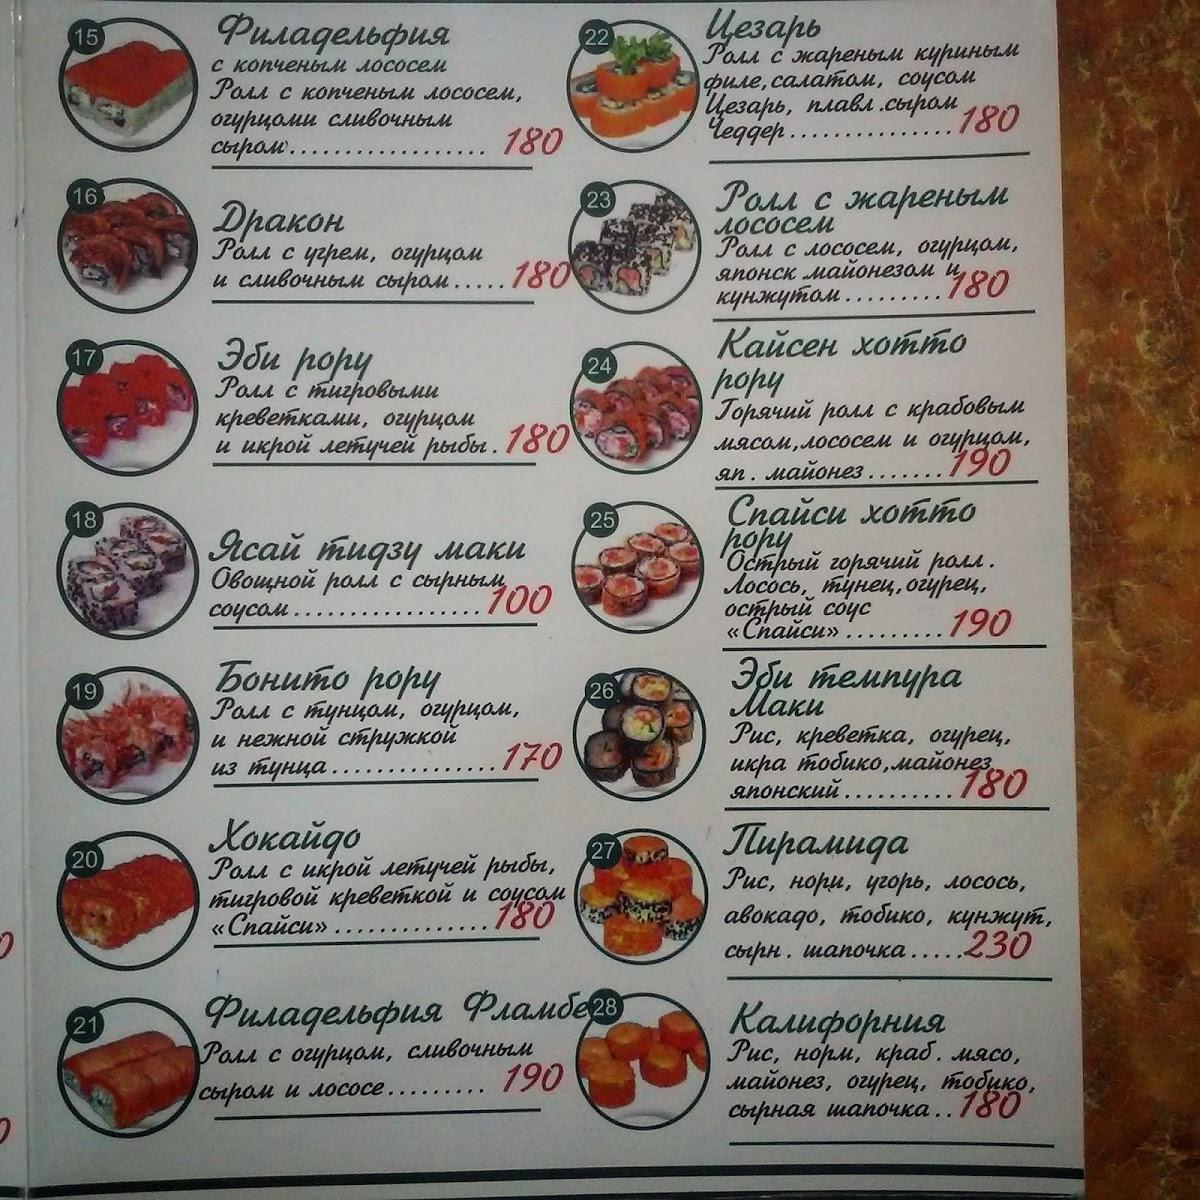 15
Филадельфия
с копченым лососем
Ролл с копченым лососем,
огурцоми сливочным
сыром.................. 180
16
Дракон
Ролл с угрем, огурцом
и сливочным сыром.....180
17
Эби рору
Ролл с тигровыми
креветками, огурцом
и икрой летучей рыбы.180
18
Ясай тидзу маки
Овощной ролл с сырным
соусом.................100
19
Бонито рору
Ролл с тунцом, огурцом,
и нежной стружкой
из тунца...............170
20
Хокайдо
Ролл с икрой летучей рыбы,
тигровой креветкой и соусом
«Спайси»..............180
21
Филадельфия Фламбе
Ролл с огурцом, сливочным
сыром и лососе......... 190
22
Цезарь
Ролл с жареным куриным
филе,салатом, соусом
Цезарь, плавл.сыром
Чеддер...............180
23
Ролл с жареным
лососем
Ролл с лососем, огурцом,
японск майонезом и
кунжутом.........180
24
Кайсен хотто
рору
Горячий ролл с крабовым
мясом,лососем и огурцом,
яп. майонез.......190
25
Спайси хотто
рору
Острый горячий ролл.
Лосось, тунец,огурец,
острый соус
«Спайси».........190
26
Эби темпура
Маки
Рис, креветка, огурец,
икра тобико,майонез
японский..........180
27
Пирамида
Рис, нори, угорь, лосось,
авокадо, тобико, кунжут,
сырн. шапочка.....230
28
Калифорния
Рис, норм, краб. мясо,
майонез, огурец, тобико,
сырная шапочка..180